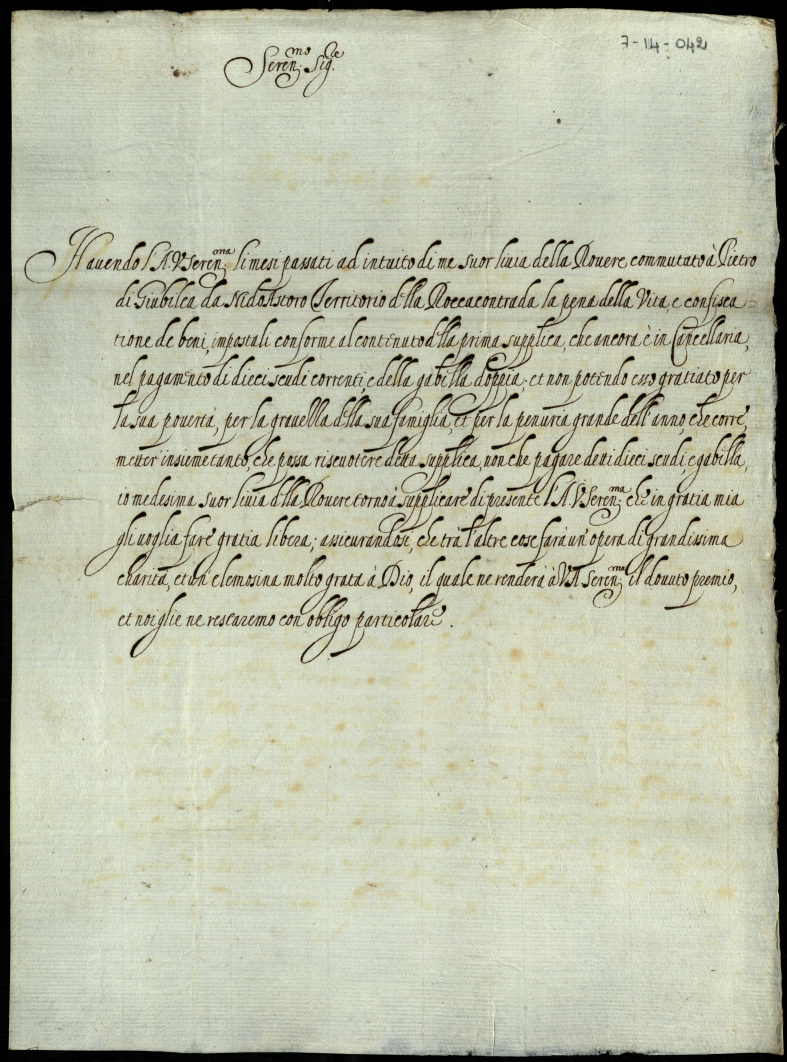 7-14-042
Seren.mo Sig.re
Havendo l'A.V. Seren.ma li mesi passati ad intuito di me suor livia della Rovere commutato à Pietro
di Giubilea da Nidastoro Territorio d'lla Roccacontrada la pena della Vita, e confisca=
tione de beni, impostali conforme al contenuto d'lla prima supplica, che ancora è in Cancellaria,
nel pagamento di dieci scudi correnti e della gabella doppia; et non potendo esso gratiato per
la sua povertà, per la gravella d'lla sua famiglia, et per la penuria grande dell'anno, che corre,
metter insieme tanto, che possa riscuotere detta supplica, non che pagare detti dieci scudi e gabella,
io medesima suor livia d'lla Rovere torno à supplicare di presente l'A.V. Seren.ma che in gratia mia
gli voglia fare gratia libera; assicurandosi, che trà l'altre cose farà un'opera di grandissima
charità, et un'elemosina molto grata à Dio, il quale ne renderà à V.A. Seren.ma il dovuto premio,
et noi glie ne restaremo con obligo particolare.